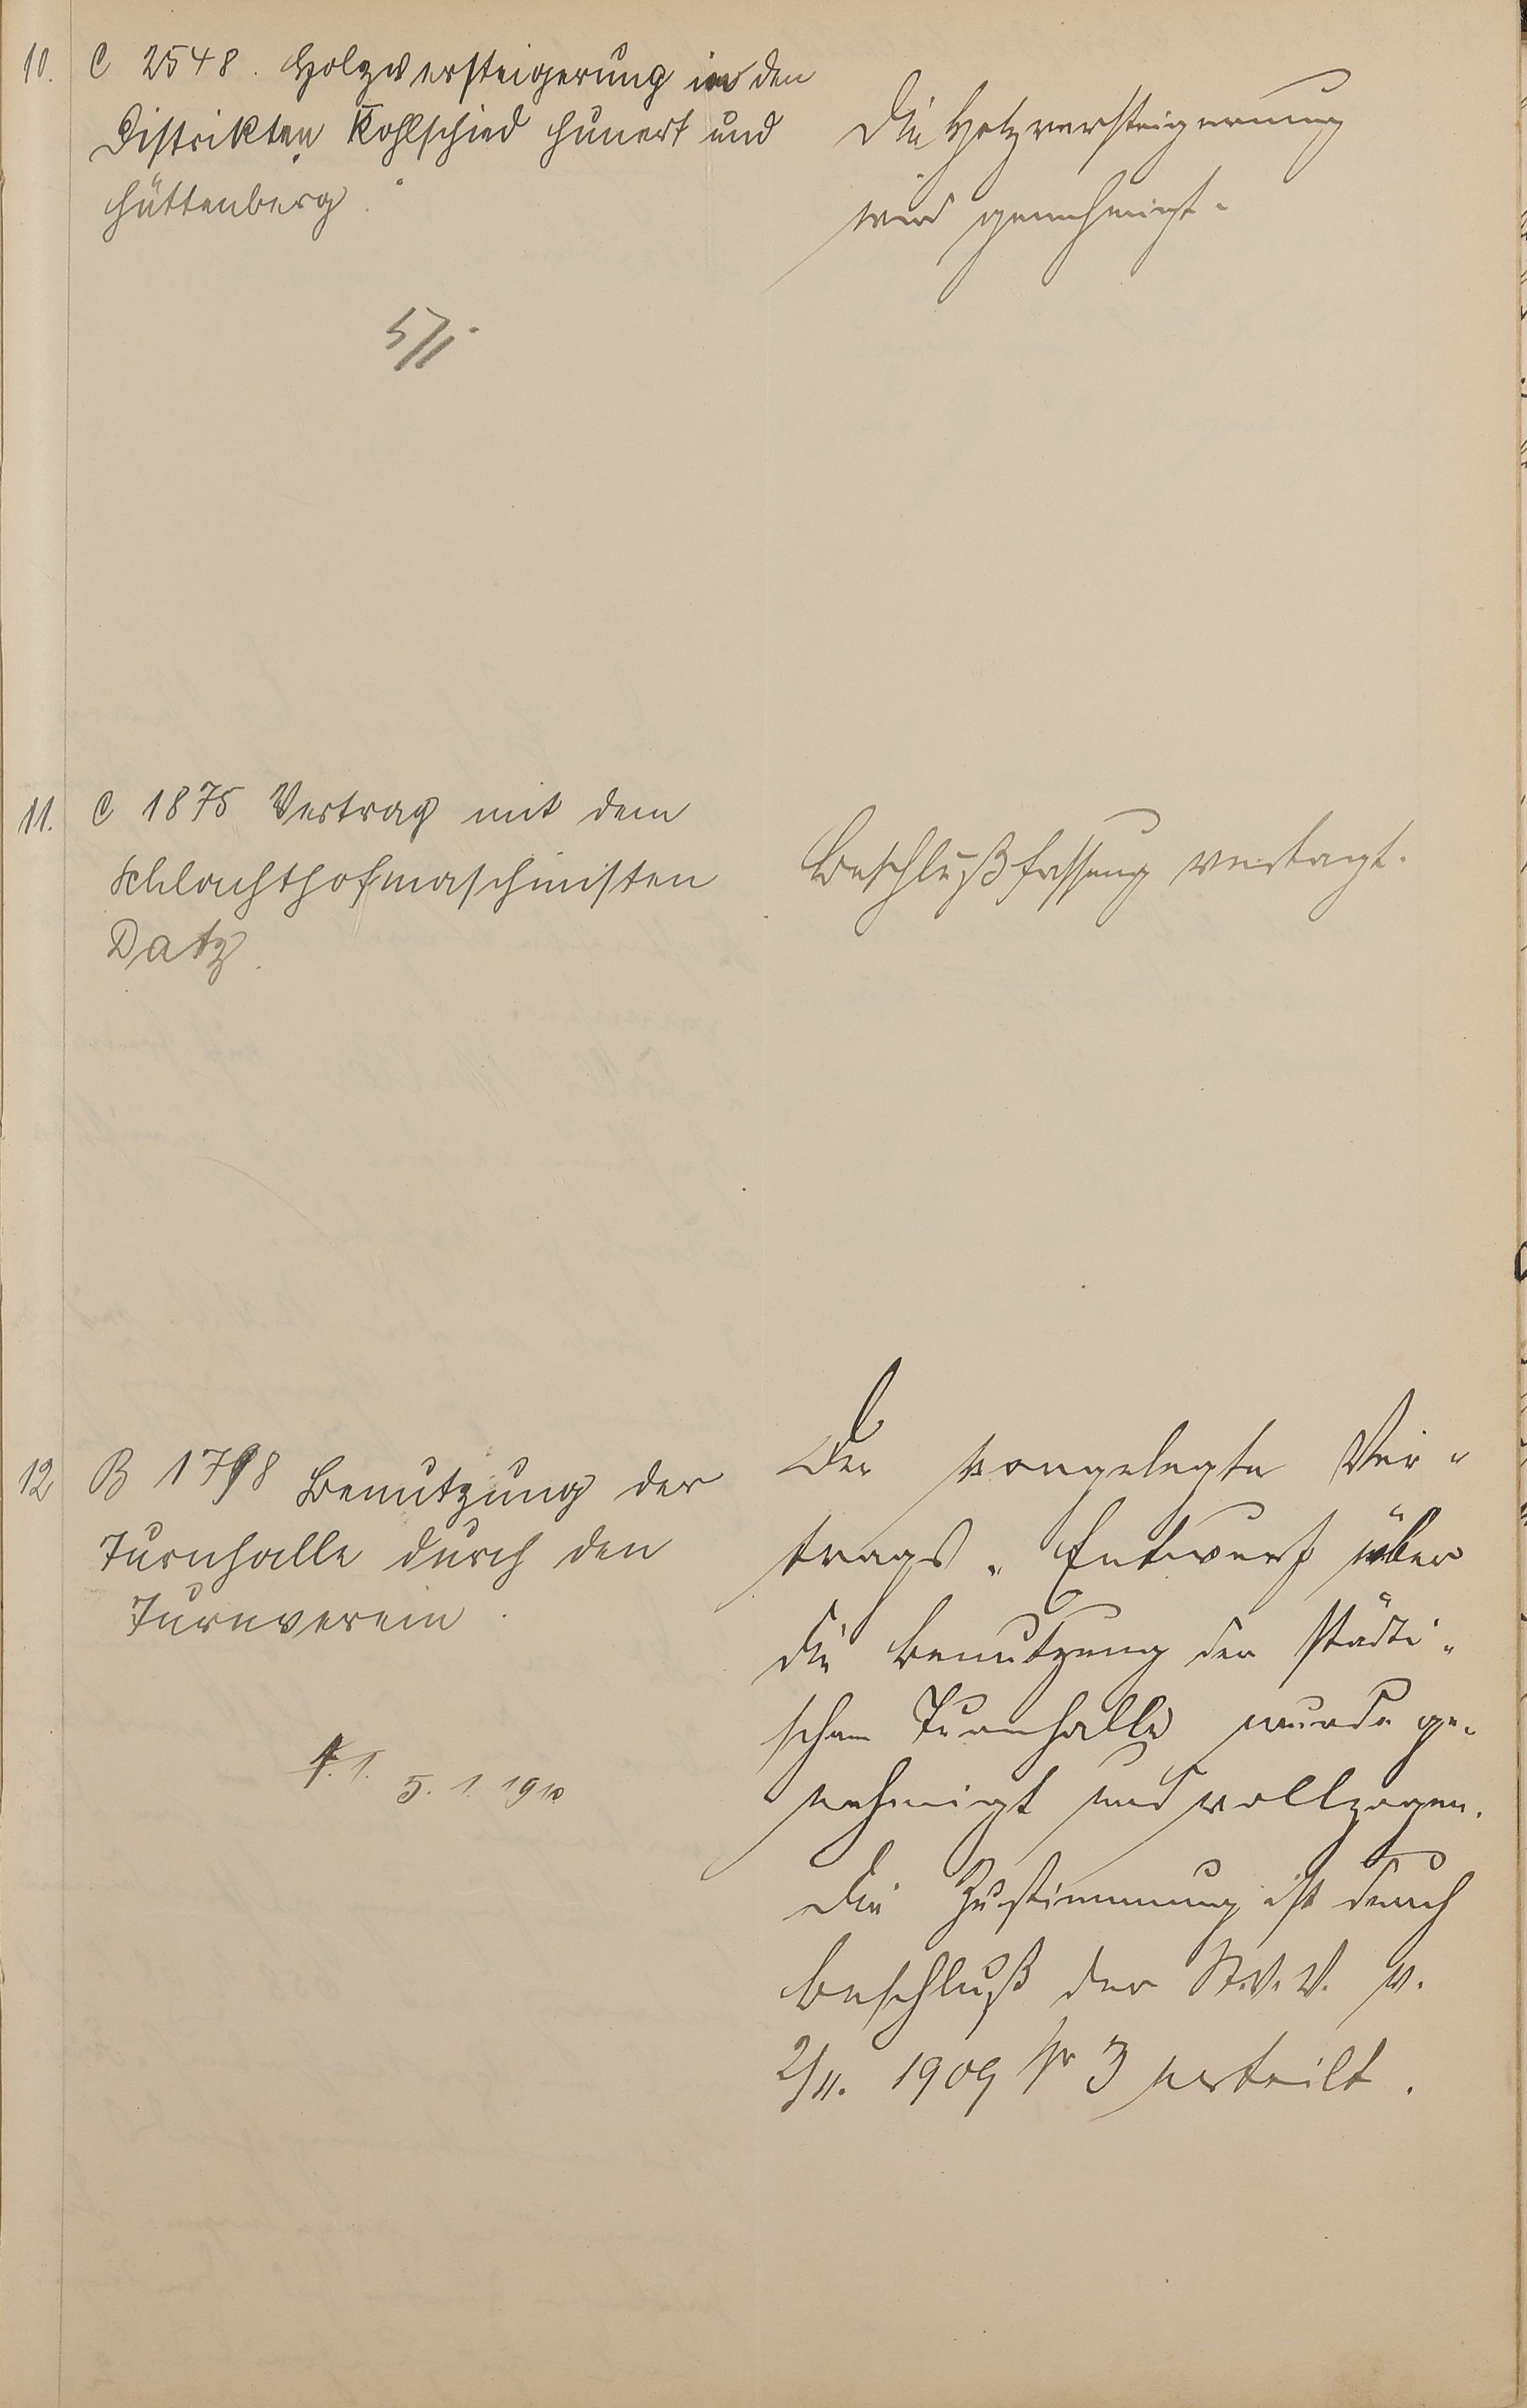 10. C 2548. Holzversteigerung in den
Distrikten Kohlschied Hunert und
Hüttenberg.
Die Holzversteigerung
wird genehmigt.
5/1.
11. C 1875 Vertrag mit dem
Schlachthofmaschinisten
Datz.
Beschlußfassung vertagt.
12 B 1798 Benutzung der
Turnhalle durch den
Turnverein.
5. 1. 1910
Der vorgelegte Ver-
trags-Entwurf über
die Benutzung der städti-
schen Turnhalle wurde ge-
nehmigt und vollzogen.
Die Zustimmung ist durch
Beschluß der St.V.V. v.
2/11. 1909 Nr 3 erteilt.